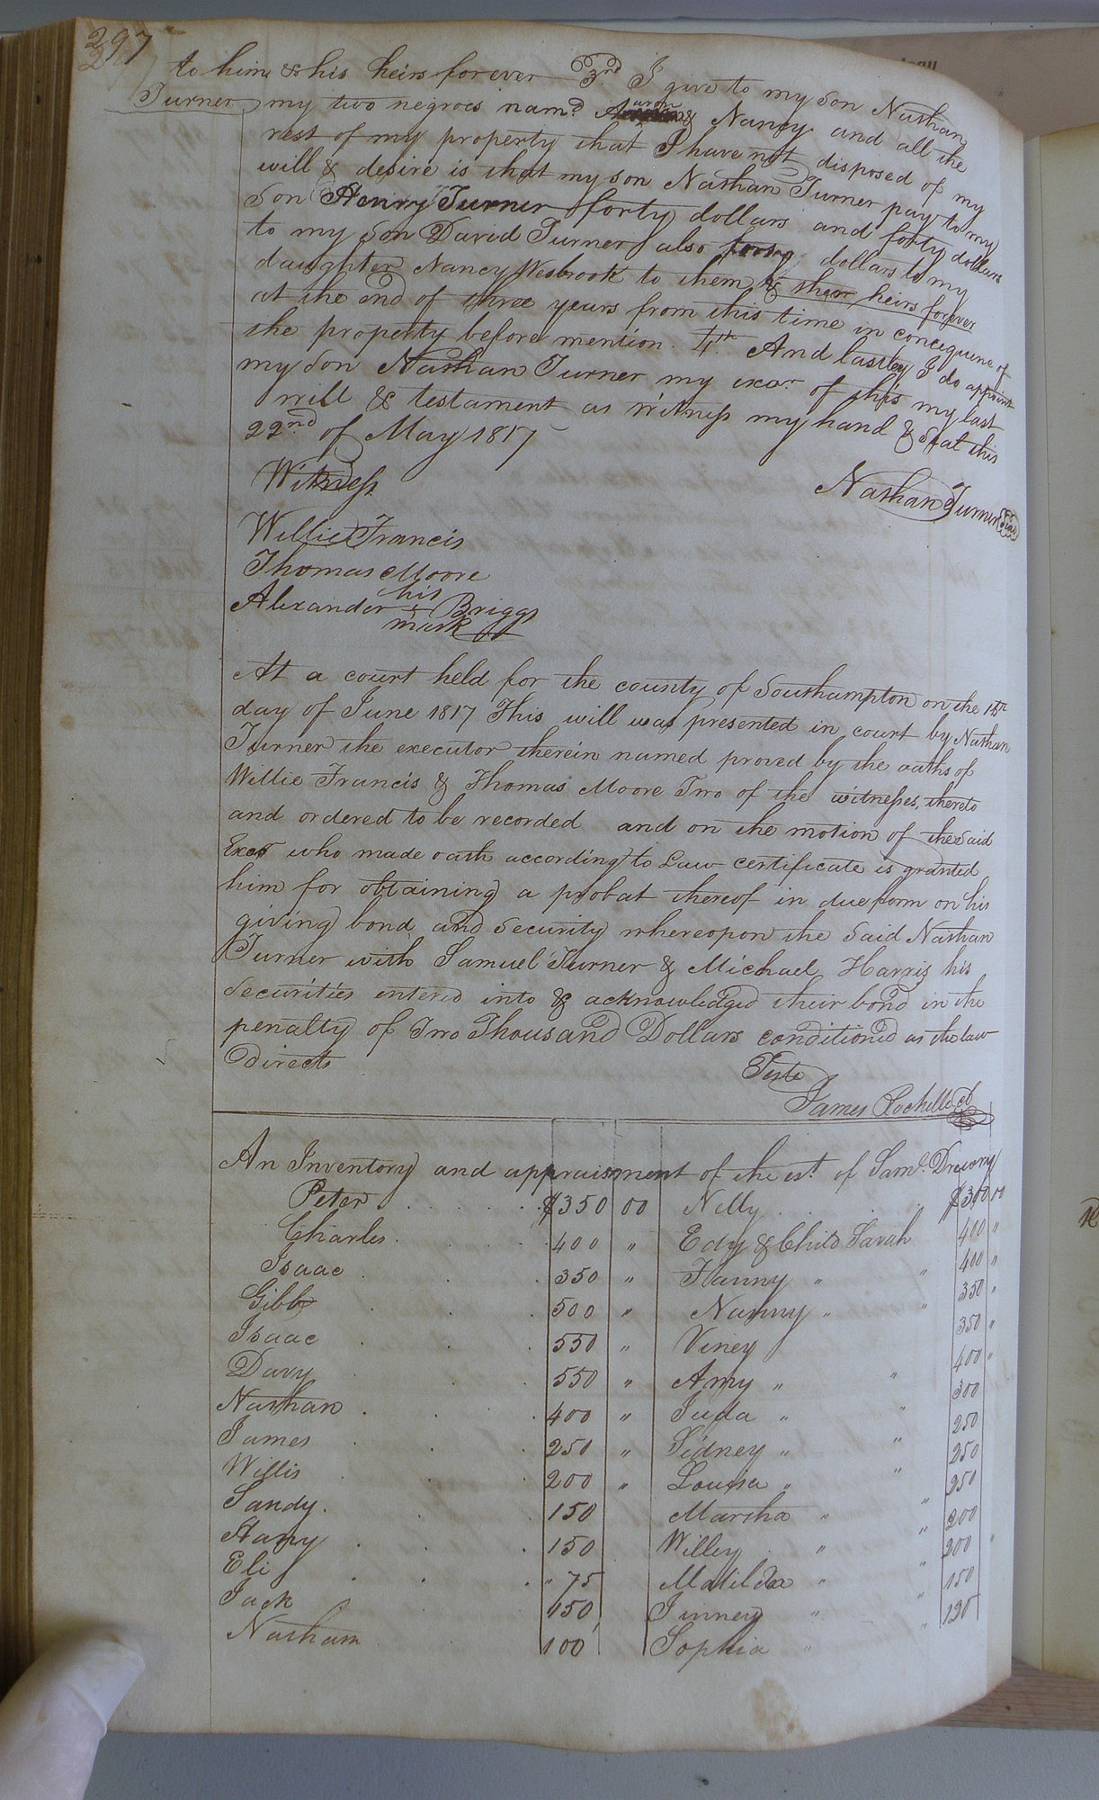 297
to him & his heirs forever 3rd I give to my son Nathan
Turner my two negroes namd Aaron & Nancy and all the
rest of my property that I have not disposed of my
will & desire is that my son Nathan Turner pay to my
Son Henry Turner forty dollars and forty dollars
to my Son David Turner also forty dollars to my
daughter Nancy Wesbrook to them & their heirs forever
at the end of three years from this time in concequence of
the property before mention. 4th And lastley I do appoint
my son Nathan Turner my exor of this my last
will & testament as witness my hand & Seal this
22nd of May 1817
Witness
Nathan Turner Seal
Willie Francis
Thomas Moore
his
Alexander + Briggs
mark
At a court held for the county of Southampton on the
day of June 1817 This will was presented in court by Nathan
Turner the executor therein named proved by the oaths of
Willie Francis & Thomas Moore Two of the witnesses thereto
and ordered to be recorded and on the motion of the said
Exor who made oath according to Law certificate is granted
him for obtaining a probat thereof in due form on his
giving bond and Security whereopon the Said Nathan
Turner with Samuel Turner & Michael Harris his
Securities entered into & acknowledged their bond in the
penalty of Two Thousand Dollars conditioned as the law
directs
Teste
James Rochelle
An Inventory and appraisment of the est. of Saml. Drewry
Peter $350 00 Nelly $300 00
Charles 400 " Edy & Child Sarah 400 "
Isaac 350 " Fanny " " 400 "
Gibb 500 " Nanny " " 350 "
Isaac 550 " Viney 350 "
Davy 550 " Amy " " 400 "
Nathan 400 " Juda " " 300
James 250 " Sidney " " 250
Willis 200 " Louisa " " 250
Sandy 150 Martha " " 250
Harry 150 Willey " " 200
Eli " 75 Matilda " " 200 "
Jack 150 Jinney " " 150
Natham 100 Sophia " "